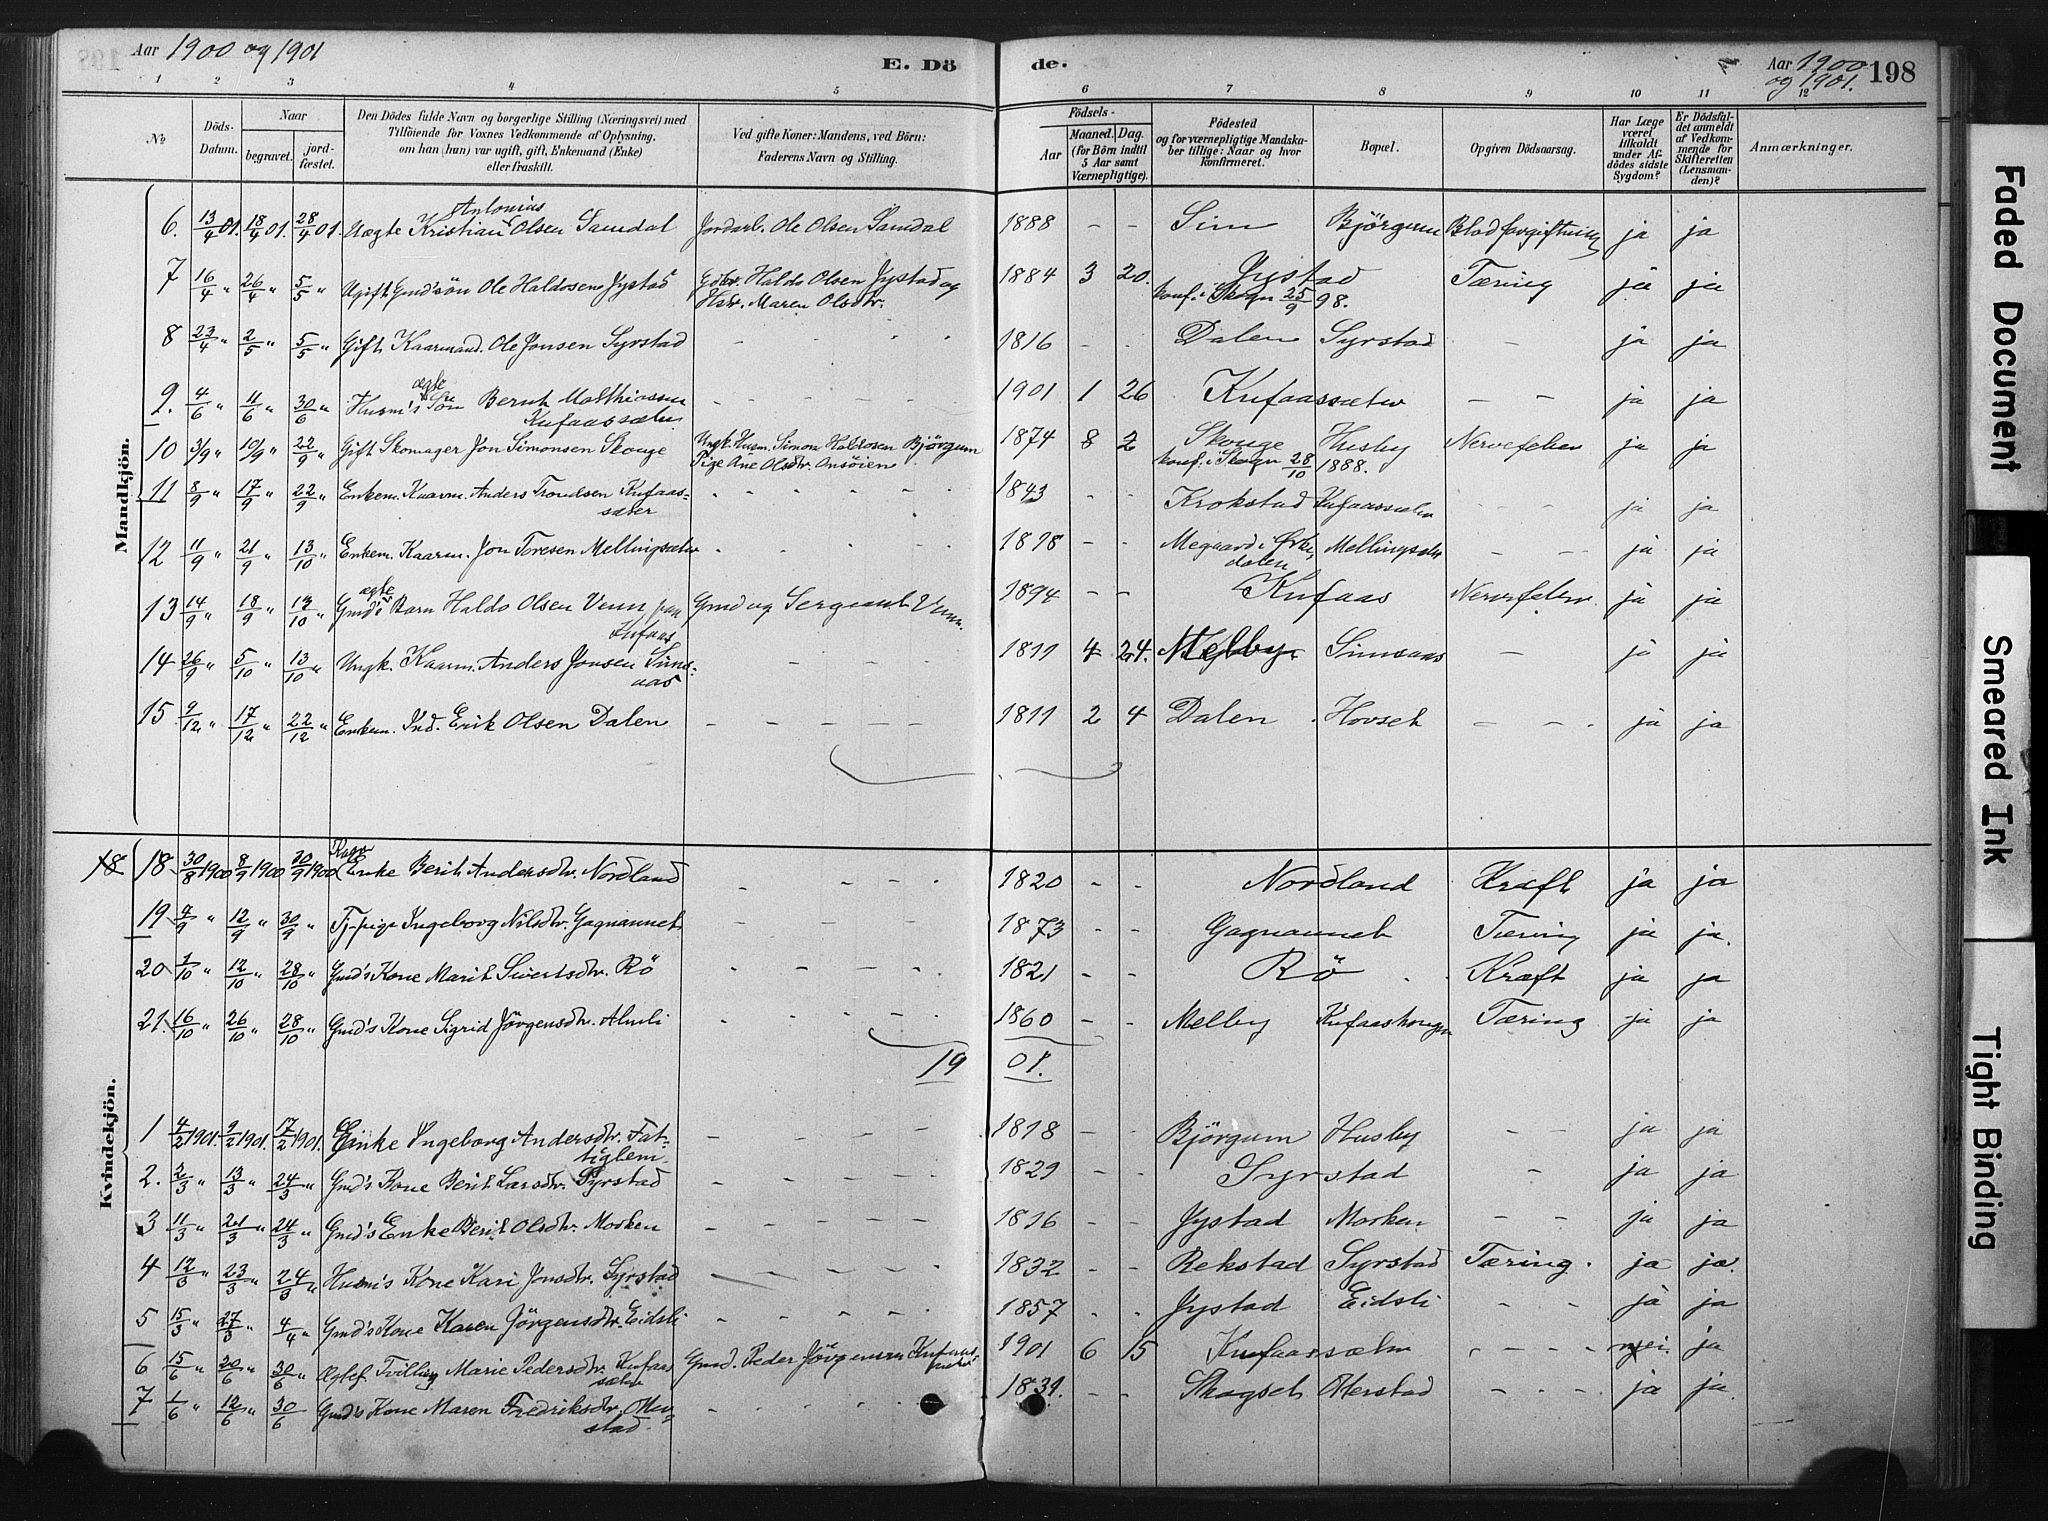 Aar 1900 og 1901
E. Dö de.
Aar 1900 og 1901.
198
1 2 3 4 5 6 7 8 9 10 11 12
No
Döds-Datum.
Naar
begravet.
jord-fæstet.
Den Dödes fulde Navn og borgerlige Stilling (Næringsvei) med
Tilföiende for Voxnes Vedkommende af Oplysning,
om han (hun) var ugift, gift, Enkemand (Enke)
eller fraskilt.
Ved gifte Koner: Mandens, ved Börn:
Faderens Navn og Stilling.
Födsels-
Aar
Maaned. Dag.
(for Börn indtil
5 Aar samt
Værnepligtige).
Födested
og for værnepligtige Mandska-
ber tillige: Naar og hvor
Konfirmeret.
Bopæl.
Opgiven Dödsaarsag.
Har Læge
været
tilkaldt
under Af-
dödes sidste
Sygdom?
Er Dödsfal-
det anmeldt
af Vedkom-
mende for
Skifteretten
(Lensman-
den)?
Anmærkninger.
Mandkjön.
6. 13/4 01. 18/4 01. 28/4 01. Uægte Kristian Antonius Olsen Samdal Jordarb. Ole Olsen Samdal 1888 – – Sim Björgum Blodforgiftning ja ja
7 16/4 " 26/4 " 5/5 " Ugift Gmd'sön Ole Haldosen Jystad Gdbr. Haldo Olsen Jystad og 1884 3 20. Jystad Tæring ja ja
Hstr. Maren Olsdtr. konf. i Skogn 25/9 98.
8 23/4 " 2/5 " 5/5 " Gift Kaarmand. Ole Jonsen Syrstad – 1816 – – Dalen Syrstad – ja ja
9. 4/6 " 11/6 " 30/6 " Husm's ægte Sön Bernt Matthiassen – 1901 1 26 Kufaassæter – – ja ja
Kufaassæter
10 3/9 " 10/9 " 22/9 " Gift Skomager Jon Simonsen Skouge Ungk. Husm. Simon Haldosen Björgum 1874 8 2 Skouge Husby Nervefeber ja ja
Pige Ane Olsdtr. Onsöien konf. i Skogn 28/10 1888.
11 8/9 " 17/9 " 22/9 " Enkem. Kaarm. Anders Trondsen Kufaas- 1843 – – Krokstad Kufaassæter – ja ja
sæter
12 11/9 " 21/9 " 13/10 " Enkem. Kaarm. Jon Toresen Mellingsæter 1818 – – Megaard i Orke- Mellingsæter – ja ja
dalen
13 14/9 " 18/9 " 13/10 " Gmd's ægte Barn Haldo Olsen Venn paa Gmd og Sergeant Venn. 1894 – – Kufaas Nervefeber ja ja
Kufaas
14 26/9 " 5/10 " 13/10 " Ungk. Kaarm. Anders Jonsen Sims- – 1811 4 24. Melby Simsaas – ja ja
aas
15. 9/12 " 17/12 " 22/12 " Enkem. Ind. Erik Olsen Dalen – 1811 2 4 Dalen Hovset – ja ja
Kvindekjön.
18 18. 30/8 1900 8/9 1900 30/9 1900 Enke Berit Andersdtr. Nordland – 1820 – – Nordland Kræft ja ja
19 9/9 " 12/9 " 30/9 " Tj. pige Ingeborg Nilsdtr. Gagnaunet – 1873 – – Gagnaunet Tæring ja ja.
20 7/10 " 12/10 " 28/10 " Gmd's Kone Marit Sivertsdtr. Rö – 1821 – – Rö Kræft ja ja
21. 16/10 " 26/10 " 28/10 " Gmd's Kone Sigrid Jörgensdtr. Almli – 1860 – – Melby Kufaashougen Tæring ja ja
19 01.
1 4/2 1901. 9/2 1901. 17/2 1901. Enke Ingeborg Andersdtr. Fat- – 1818 Björgum Husby ja ja
tiglem
2. 2/3 " 13/3 " 24/3 " Gmd's Kone Berit Larsdtr. Syrstad 1829 – – Syrstad – ja ja
3 11/3 " 21/3 " 24/3 " Gmd's Enke Berit Olsdtr. Morken – 1816 – – Jystad Morken – ja ja
4 12/3 " 23/3 " 24/3 " Husm's Kone Kari Jonsdtr. Syrstad – 1832 – – Rekstad Syrstad Tæring. ja ja.
5 15/3 " 27/3 " 4/4 " Gmd's Kone Karen Jörgensdtr. Eidsli – 1857 – – Jystad Eidsli – ja ja
6 15/6 " 20/6 " 30/6 " Ægtef. Tvilling Marie Pedersdtr. Kufaas Gmd. Peder Jörgensen Kufaas- 1901 6 15 Kufaassæter – nei. ja
sæter
7 1/6 " 12/6 " 30/6 " Gmd's Kone Maren Fredriksdtr. Mer- 1839. – – Skogset Merstad – ja ja.
stad
Faded Document
Smeared Ink
Tight Binding